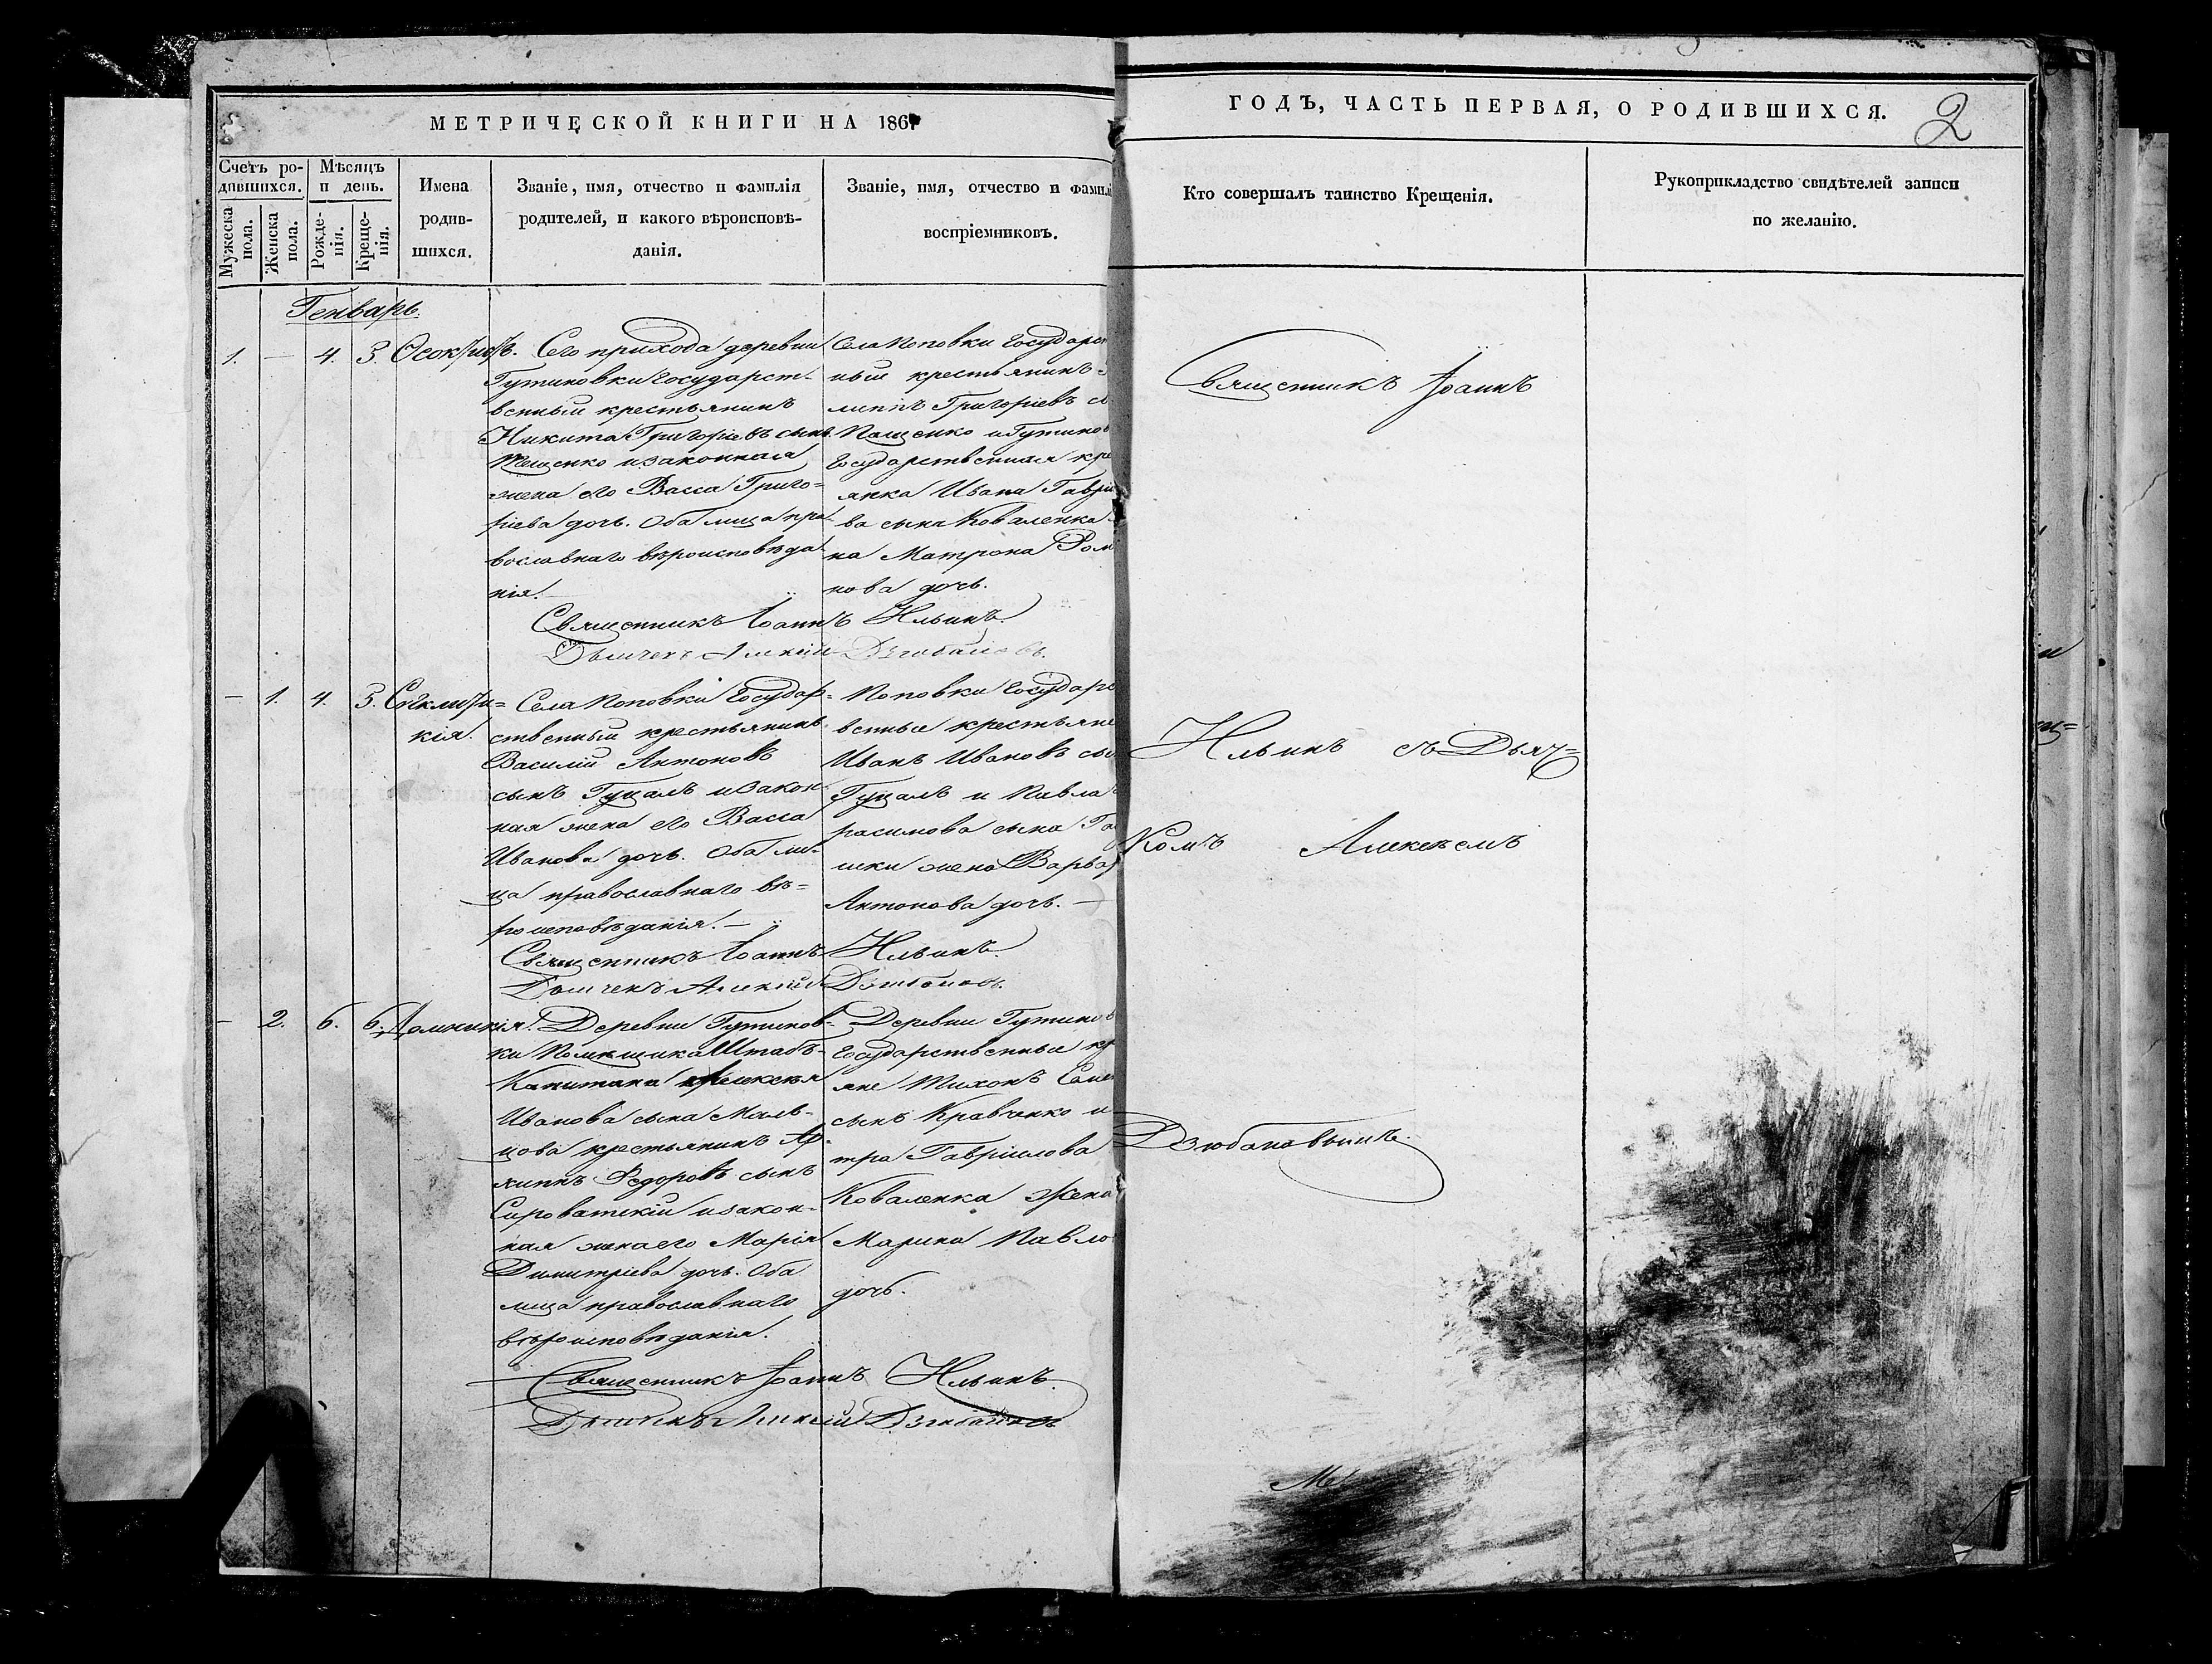 МЕТРИЧЕСКОЙ КНИГИ НА 186
ГОДЪ, ЧАСТЬ ПЕРВАЯ, О РОДИВШИХСЯ.
2
Счетъ ро-
дившихся.
Мужеска пола.
Женска пола.
Мѣсяцъ
и день.
Рожде-
нія.
Креще-
нія.
Имена
родив-
шихся.
Званіе, имя, отчество и фамилія
родителей, и какого вѣроисповѣ-
данія.
Званіе, имя, отчество и фамилі
воспріемниковъ.
Кто совершалъ таинство Крещенія.
Рукоприкладство свидѣтелей записи
по желанію.
Генварь.
1. — 4. 5.
Сего прихода деревни
Гутниковки Государст-
венный крестьянинъ
Никита Григорьевъ сынъ
и законная
жена его Васса Григо-
ріева дочь. Оба лица пра-
вославнаго вѣроисповѣда-
нія.
Села Поповки Государст
ный крестьянинъ
липпъ Григоріевъ с
Пащенко и Гутинов
Государственная кре
янка Ивана Гаврі
ва сына Коваленка
на Матрона Ром
нова дочь.
Священникъ Іоаннъ Ильинъ.
Дьячекъ Алексій Дзюбановъ.
— 1. 4. 5. Сигклити-
кія.
Села Поповки Государ-
ственный крестьянинъ
Василій Антоновъ
сынъ Гуцалъ и закон-
ная жена его Васса
Иванова дочь. Оба ли-
ца православнаго вѣ-
роисповѣданія. —
Поповки Государс
венные крестьяне
Иванъ Ивановъ сы
Гуцалъ и Павла
расимова сына Га
шки жена Варвар
Антонова дочь. —
Священникъ Іоаннъ Ильинъ.
Дьячекъ Алексій Дзюбановъ.
— 2. 6. 6. Домникія.
Деревни Гутинов-
ки Помѣщика Штабъ-
Капитана Алексѣя
Иванова сына Маль-
цова крестьянинъ Ар-
хиппъ Ѳедоровъ сынъ
Сыроватскій и закон-
ная жена его Марія
Димитріева дочь. Оба
лица православнаго
вѣроисповѣданія.
Деревни Гутинов
Государственные кр
яне Тихонъ Семе
сынъ Кравченко и
тра Гавріилова
Коваленка жена
Марина Павло
дочь.
Священникъ Іоаннъ Ильинъ.
Дьячекъ Алексій Дзюбановъ
Священникъ Іоаннъ
Ильинъ съ Дьяч-
комъ Алексѣемъ
Дзюбановымъ.